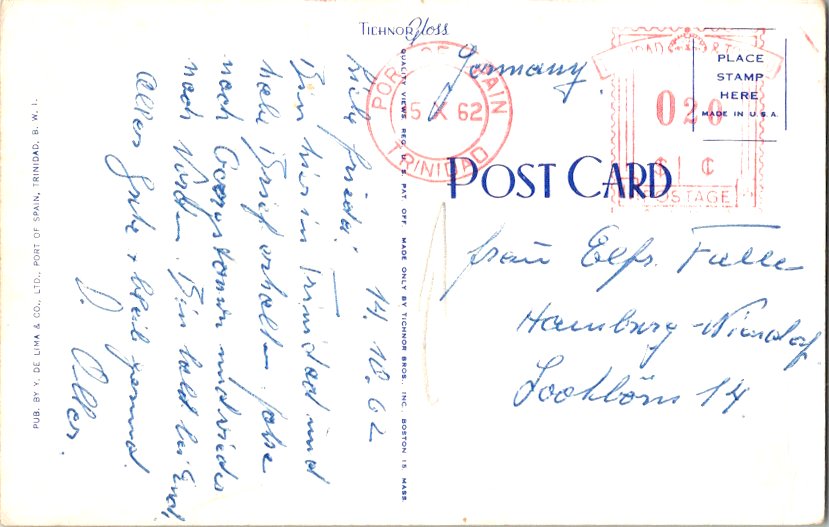 TICHNOR Gloss
QUALITY VIEWS REG. U. S. PAT. OFF. MADE ONLY BY TICHNOR BROS., INC. BOSTON 15, MASS.
PUB. BY Y. DE LIMA & CO., LTD., PORT OF SPAIN, TRINIDAD, B. W. I.
14. 10. 62
Bin hier in Trinidad und
habe Brief erhalten. Fahre
nach Georgetown und wieder
nach Norden. Bin bald bei Euch,
Alles Gute + bleib gesund
Germany
PORT OF SPAIN
15 X 62
TRINIDAD
PLACE
STAMP
HERE
MADE IN U.S.A.
020
$ ¢
POSTAGE
POST CARD
Frau Elfr.
Hamburg-Niendorf
14